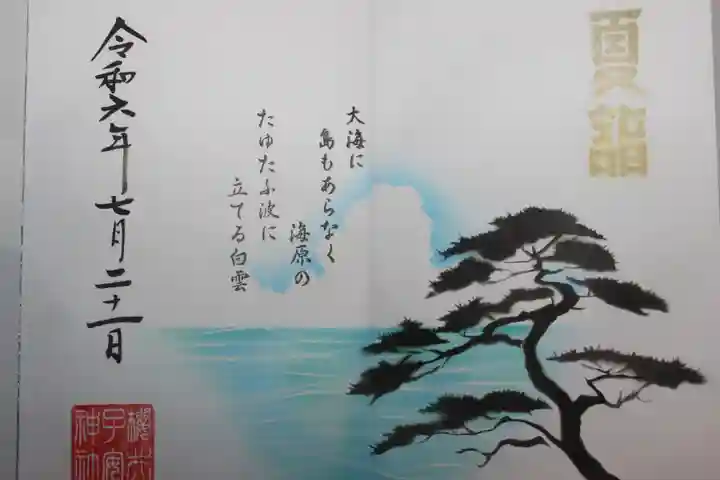 夏詣
大海に
島もあらなく
海原の
たゆたふ波に
立てる白雲
令和六年七月二十一日